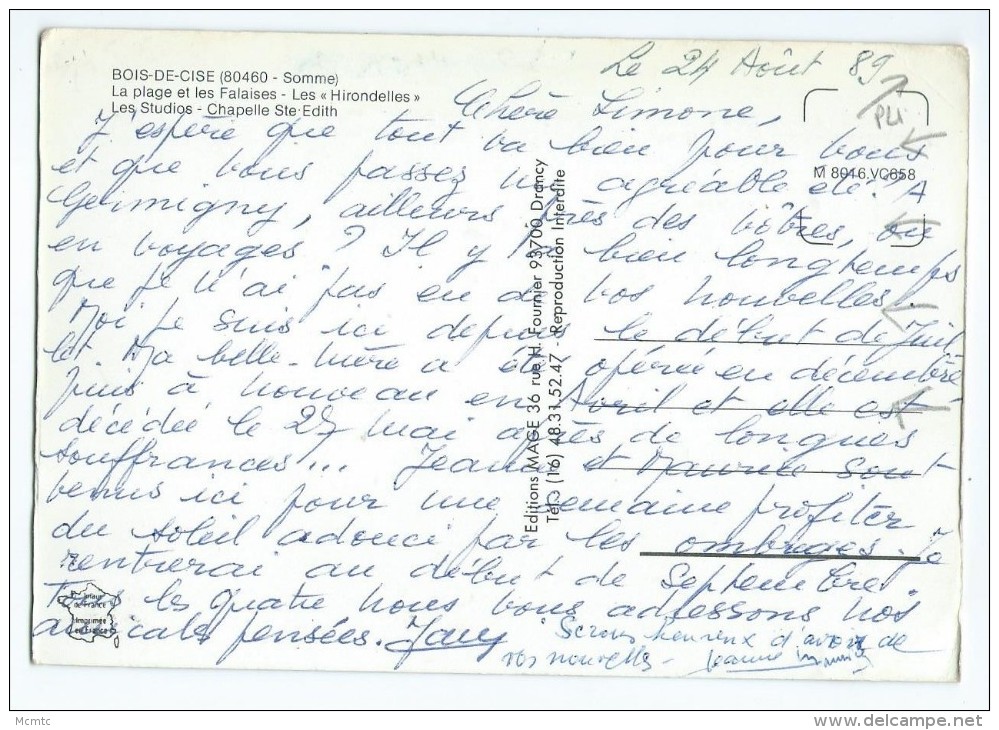 Le 24 Août 89
PLI
BOIS-DE-CISE (80460 - Somme)
La plage et les Falaises - Les « Hirondelles »
Les Studios - Chapelle Ste-Edith
M 8916.VC658
Chère Simone,
J'espère que tout va bien pour vous
et que vous passez un agréable été ? A
Germigny, ailleurs près des vôtres, ou
en voyages ? Il y a bien longtemps
que je n'ai pas eu de vos nouvelles.
Moi je suis ici depuis le début de Juil
let. Ma belle-mère a été opérée en décembre
puis à nouveau en Avril et elle est
décédée le 27 mai après de longues
souffrances... Jeanne et Maurice sont
venus ici pour une semaine profiter
du soleil adouci par les ombrages. Je
rentrerai au début de Septembre.
Tous les quatre nous vous adressons nos
amicales pensées.
Serons heureux d'avoir de
vos nouvelles - Jeanne
Editions MAGE 36 rue H. Fournier 93700 Drancy
Tél. (16) 48.31.52.47 - Reproduction Interdite
Imprimée
en France
Mcmtc
delcampe.net